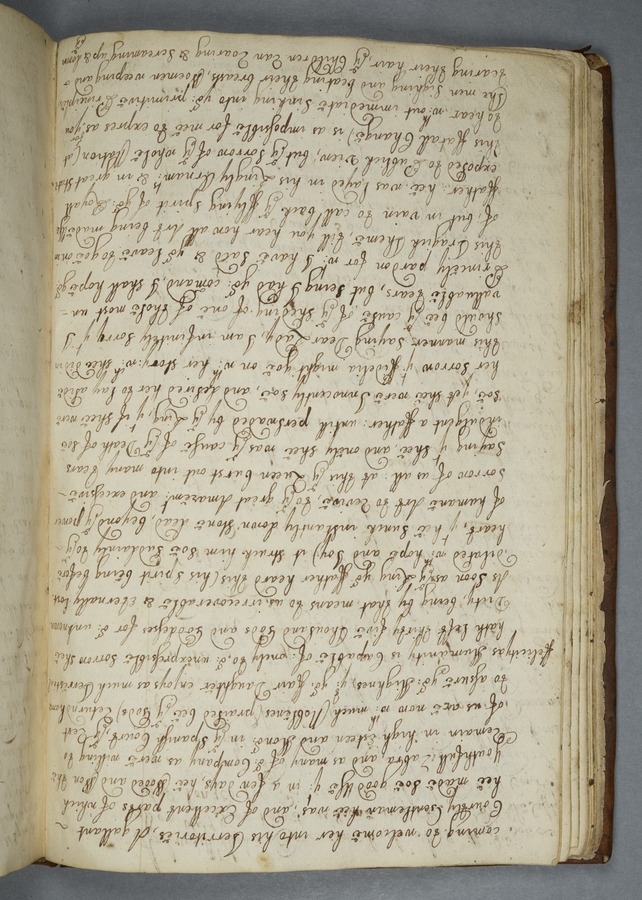 coming to welcome her into his Territories A gallant
Courtly Gentleman hee was, and of Excellent parts of which
hee made soe good use yt in a few days, hee Woed and Won the
youthfull Zabra and as many of or Company as were willing to
Remain in high Esteem and Honor in ye Spanish Court, ye rest
of us are now wth much (Noblenes) praised bee ye Gods Return'd home
to assure yor Highnes yt yor fair Daughter enjoys as much Terrestriall
felicity as Humanity is Capable of: only to or unexpressible sorrow shee
hath Left thirty five thousand Gods and Goddeses for or unknown
Dity, being by that means to us irrecoverable & Eternally Lost
As soon as ye King yor ffather heard this (his spirit being before
dilated wth hope and Joy) it struck him soe suddainly to ye
heart, yt hee sunk instantly down stone dead, beyond ye power
of humane Art to Revive, to ye great Amazemt: and excessive
sorrow of us all: at this ye Queen burst out into many tears
saying yt shee and only shee was ye cause of ye Death of soe
indulgent a ffather: untill perswaded by ye King, yt if shee were
soe yet shee were Innocently soe, and desired her to lay aside
her sorrow yt Fidelia might goe on wth her story: wch shee did in
this manner, saying Dear Lady, I am infinitely sorry yt I
should bee ye cause of ye sheding of one of those most un-
valuable tears, but seing I had yor comand, I shall hope yor
Princely pardon for wt I have said & yor Leave to goe on in
this Tragick Theme, till you hear how all Art being made use
of but in vain to call back ye fflying spirit of yor Royall
ffather: hee was layed in his Kingly Ornamts: & in great state
exposed to Publick View, but ye sorrow of ye whole (Nation (at
this ffatall Change) is as impossible for mee to expres as you
to hear wthout immediate sinking into yor primitive Principles
The men sighing and beating their breasts Woemen weeping and
tearing their hair ye Children Ran Roaring & screaming up & down